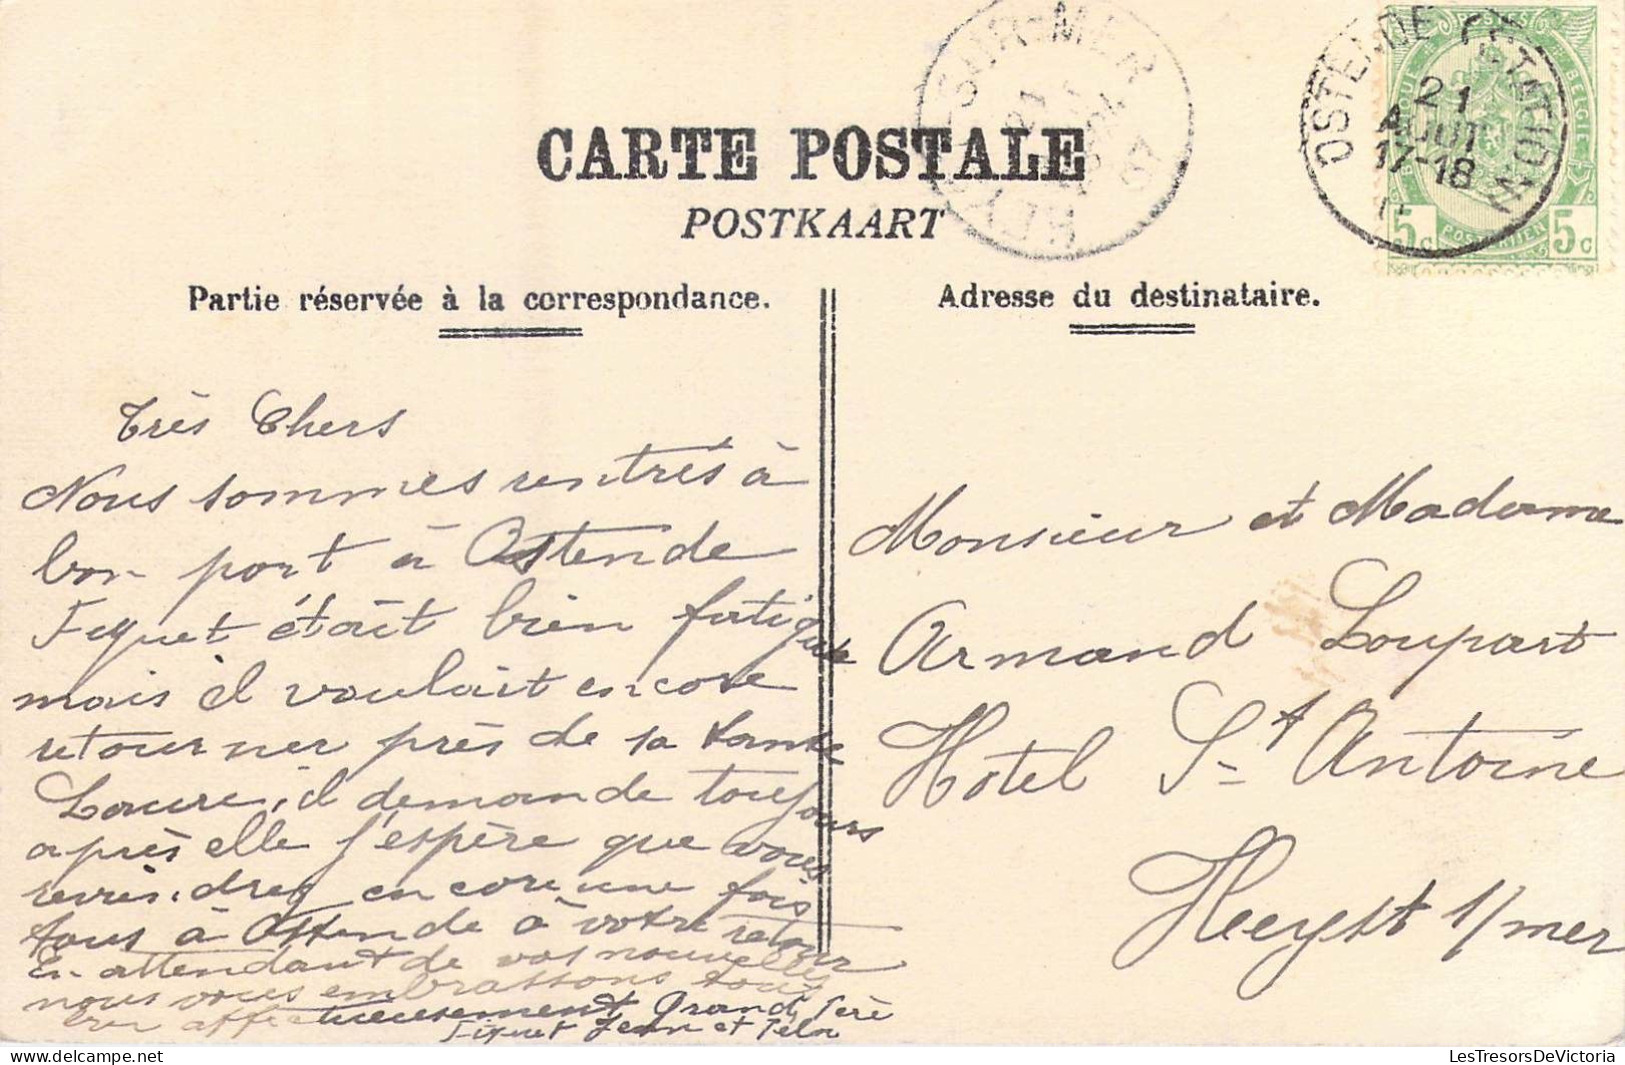 CARTE POSTALE
POSTKAART
Partie réservée à la correspondance.
Très Chers
Nous sommes rentrés à
bon port à Ostende
Fiquet était bien fatigué
mais il voulait encore
retourner près de sa tante
Laure, il demande toujours
après elle j'espère que vous
reviendrez encore une fois
tous à Ostende à votre retour
En attendant de vos nouvelles
nous vous embrassons tous
bien affectueusement Grand Père
Fiquet Jean et
Adresse du destinataire.
Monsieur et Madame
Armand Loupart
Hotel St Antoine
Heyst s/mer
SUR-MER
HEYST
OSTENDE (STATION)
21
AOUT
17-18
POSTES
BELGIQUE
BELGIE
POSTERIJEN
5c 5c
LesTresorsDeVictoria